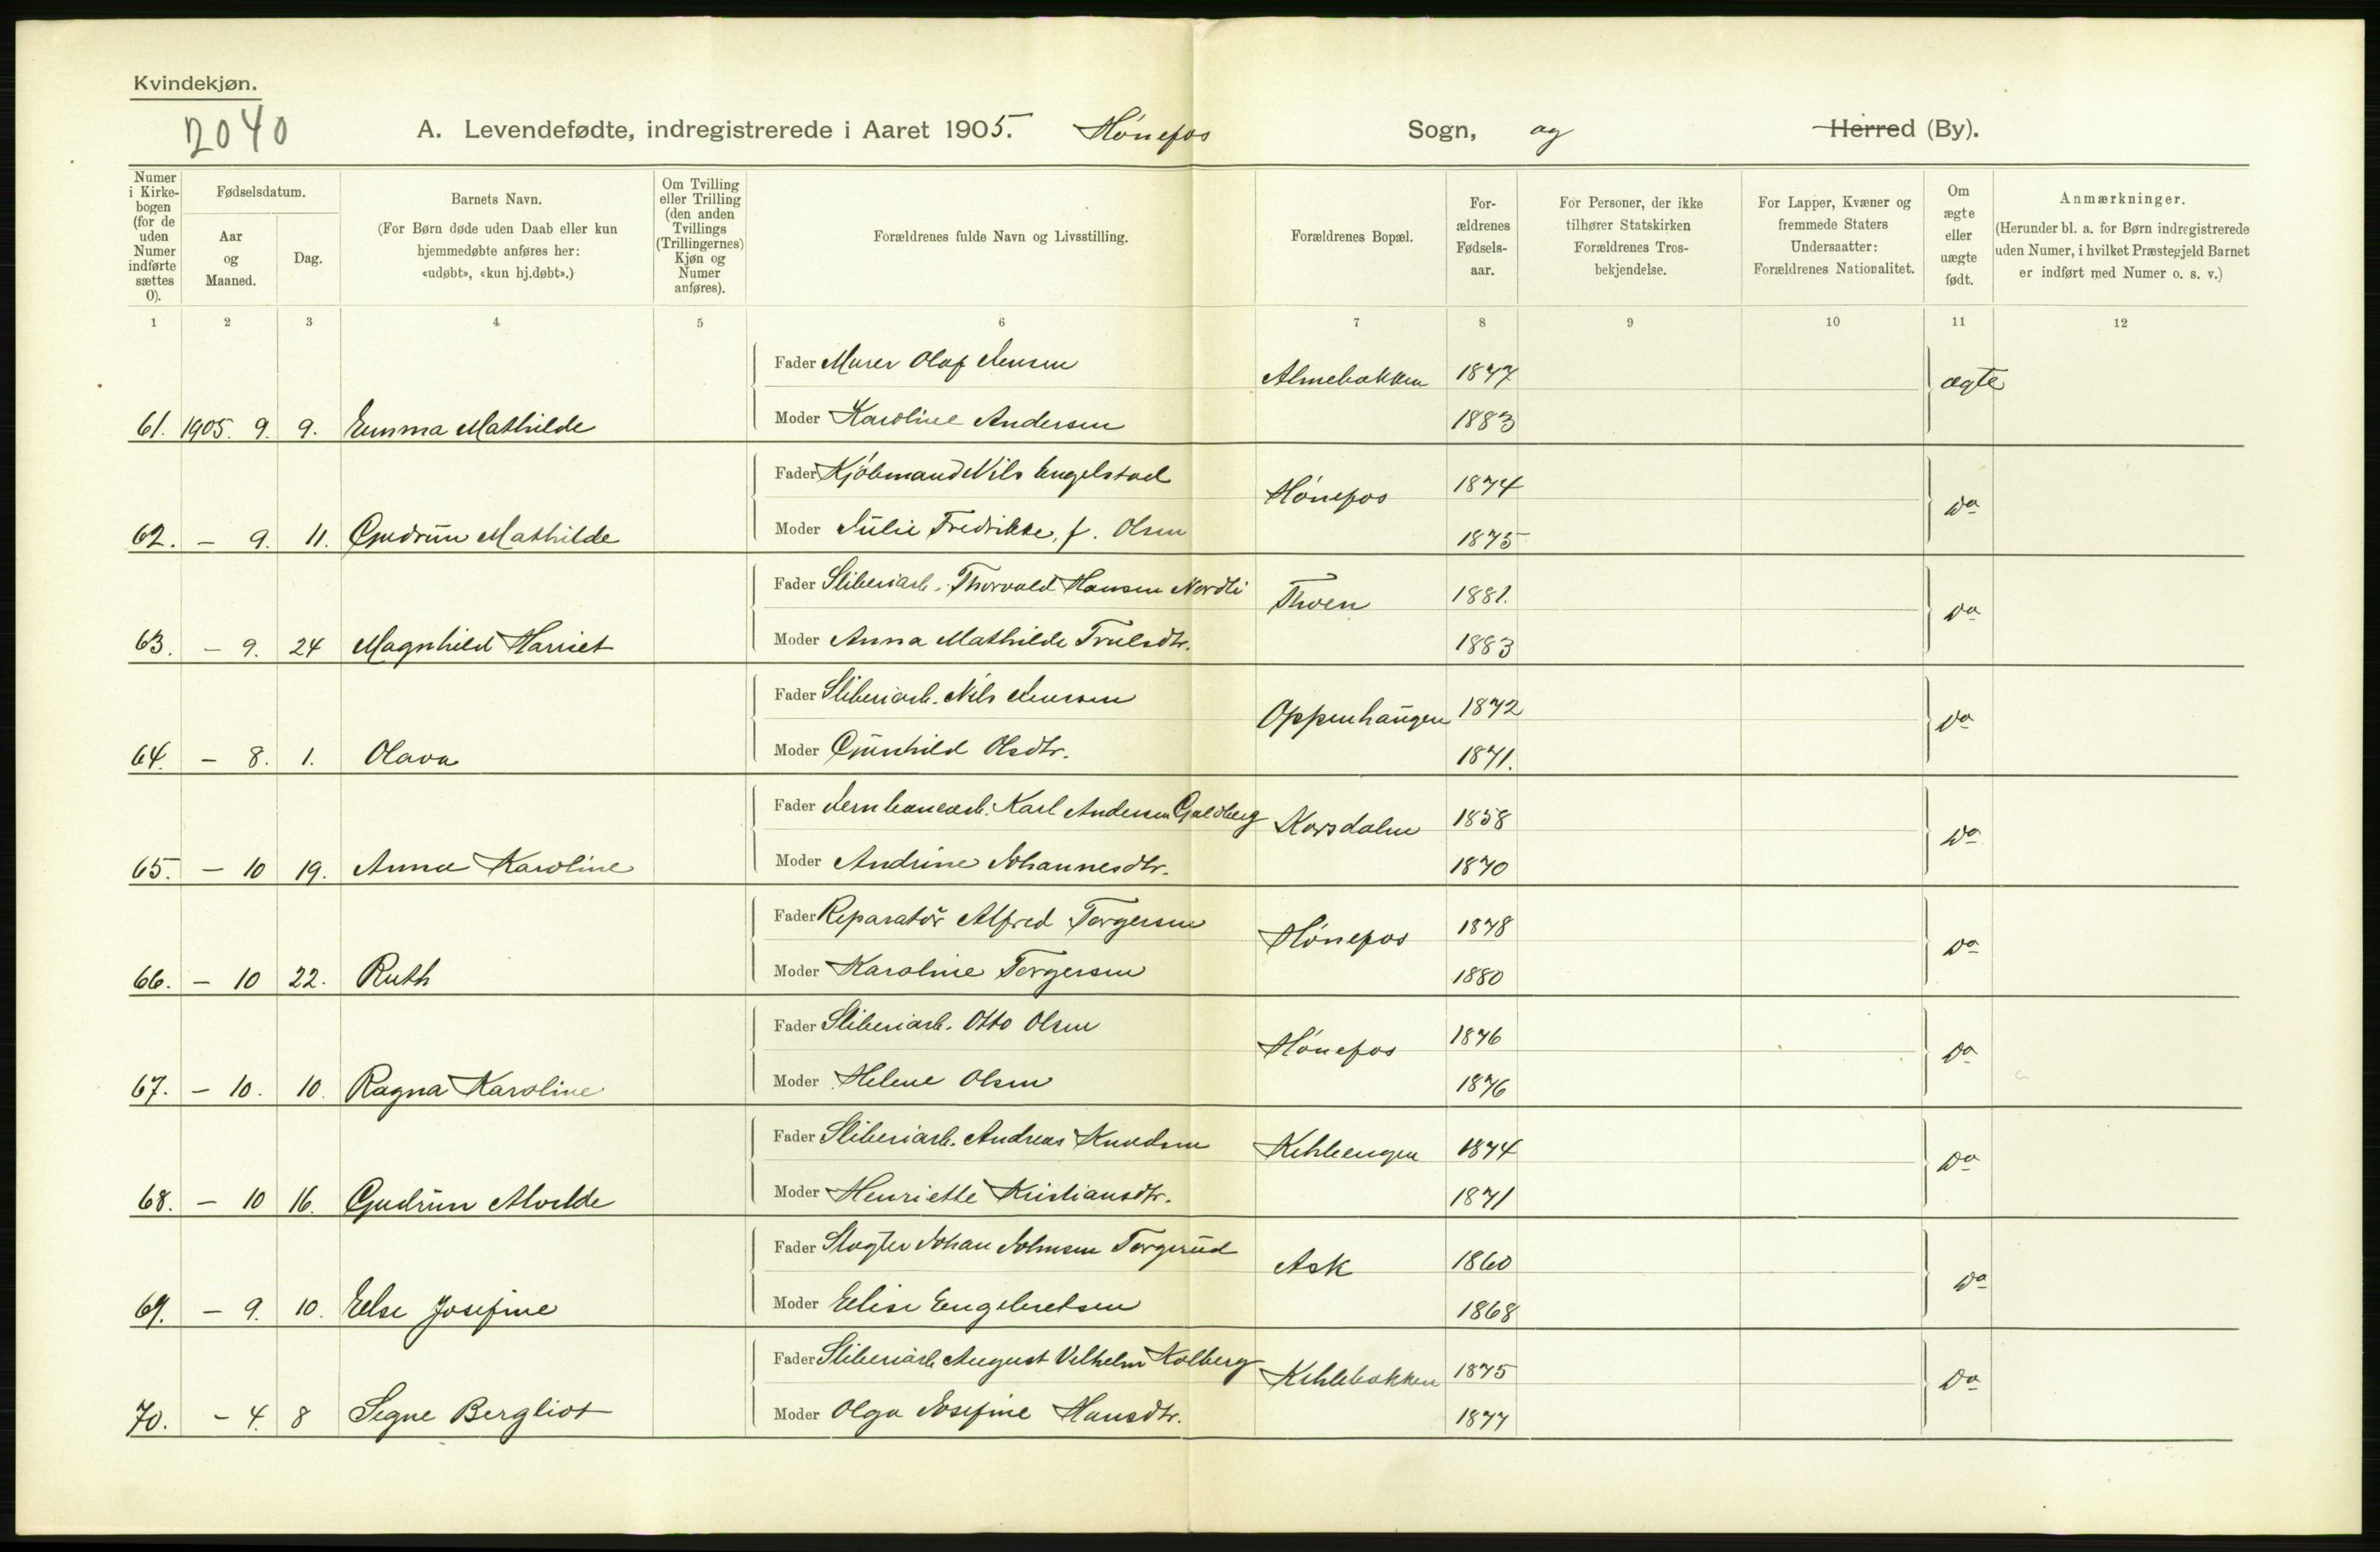 Kvindekjøn.
2040
A. Levendefødte, indregistrerede i Aaret 1905. Hønefos Sogn, og Herred (By).
Numer i Kirkebogen (for de uden Numer indførte sættes 0).
Fødselsdatum.
Aar og Maaned.
Dag.
Barnets Navn.
(For Børn døde uden Daab eller kun hjemmedøbte anføres her: «udøbt», «kun hj.døbt».)
Om Tvilling eller Trilling (den anden Tvillings (Trillingernes) Kjøn og Numer anføres).
Forældrenes fulde Navn og Livsstilling.
Forældrenes Bopæl.
For-ældrenes Fødsels-aar.
For Personer, der ikke tilhører Statskirken Forældrenes Tros-bekjendelse.
For Lapper, Kvæner og fremmede Staters Undersaatter: Forældrenes Nationalitet.
Om ægte eller uægte født.
Anmærkninger.
(Herunder bl. a. for Børn indregistrerede uden Numer, i hvilket Præstegjeld Barnet er indført med Numer o. s. v.)
1 2 3 4 5 6 7 8 9 10 11 12
Fader Murer Olaf Jensen Almebakken 1877 ægte
61. 1905. 9. 9. Emma Mathilde Moder Karoline Andersen 1883
Fader Kjøbmand Nils Engelstad Hønefos 1874 do
62. - 9. 11. Gudrun Mathilde Moder Julie Fredrikke, f. Olsen 1875
Fader Sliberiarb. Thorvald Hansen Nordli Thoen 1881. do
63. - 9. 24 Magnhild Harriet Moder Anna Mathilde Trulsdtr. 1883
Fader Sliberiarb. Nils Jensen Oppenhaugen 1872 do
64. - 8. 1. Olava Moder Gunhild Olsdtr. 1871.
Fader Jernbanearb. Karl Andersen Guldberg Korsdalen 1858 do
65. - 10 19. Anna Karoline Moder Andrine Johannesdtr. 1870
Fader Reparatør Alfred Torgersen Hønefos 1878 do
66. - 10 22. Ruth Moder Karoline Torgersen 1880
Fader Sliberiarb. Otto Olsen Hønefos 1876 do
67. - 10. 10. Ragna Karoline Moder Helene Olsen 1876
Fader Sliberiarb. Andreas Knudsen 1874 do
68. - 10 16. Gudrun Alvilde Moder Henriette Kristiansdtr. 1871
Fader Slagter Johan Johnsen Torgerud Ask 1860 do
69. - 9. 10. Else Josefine Moder Elise Engebretsen 1868
Fader Sliberiarb. August Vilhelm Kolberg 1875 do
70. - 4. 8 Segne Bergliot Moder Olga Josefine Hansdtr. 1877